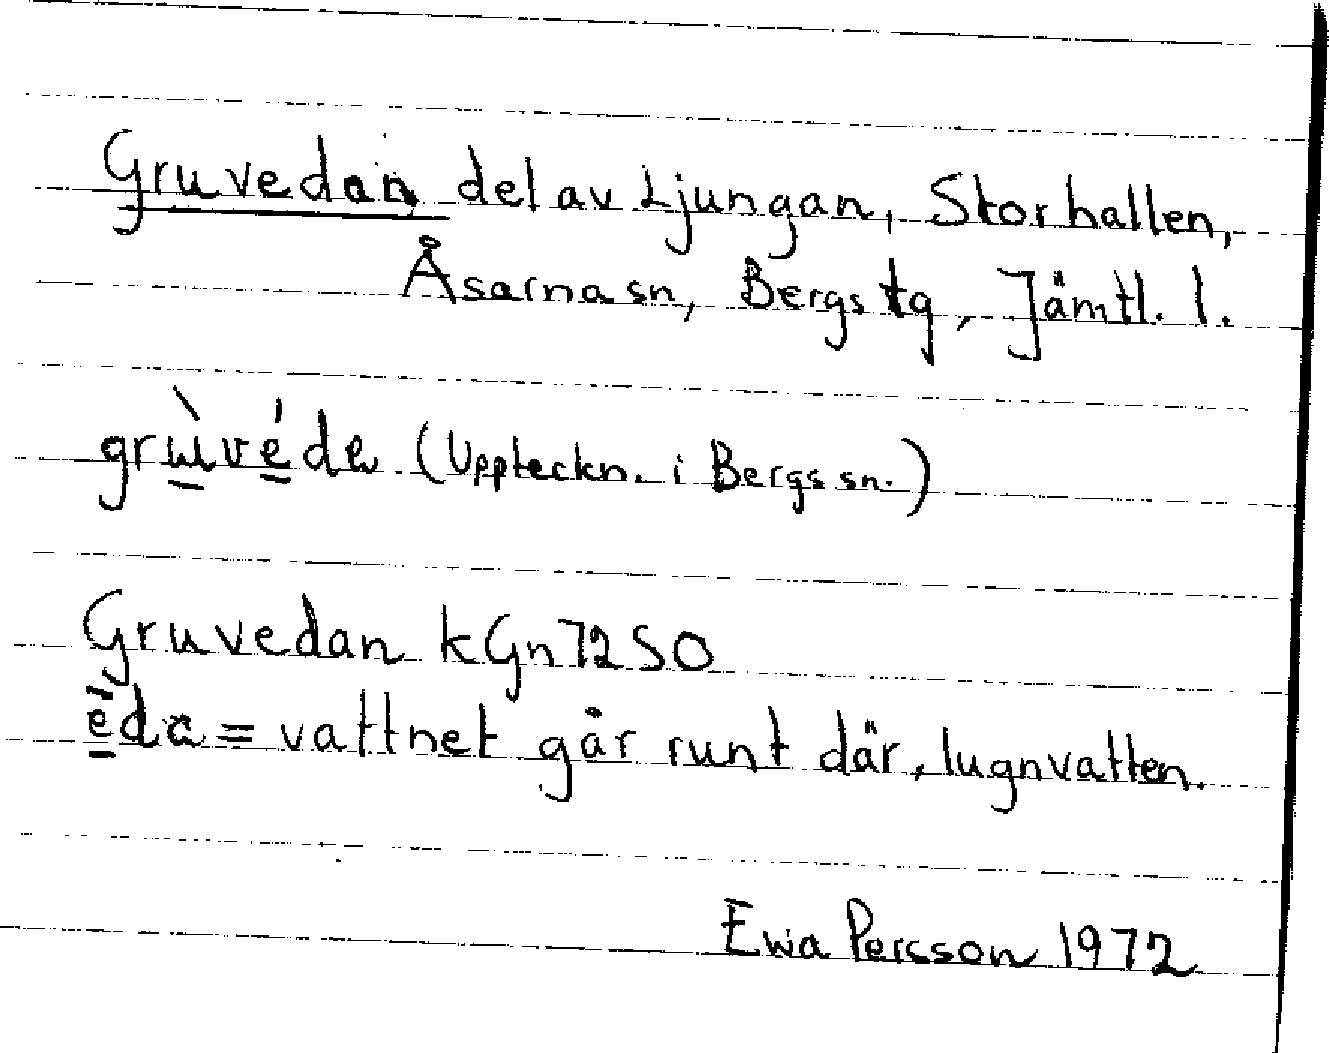 Gruvedan del av Ljungan, Storhallen,
Åsarna sn, Bergs tg, Jämtl. l.
grùvéda (Uppteckn. i Bergs sn.)
Gruvedan kGn72SO
eda = vattnet går runt där, lugnvatten.
Ewa Persson 1972